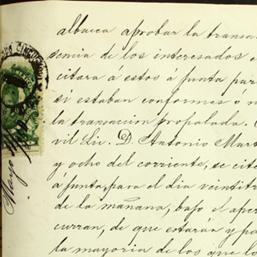 albacea aprobar la transac
semia de los interesados
citara á estos á junta par
si estaban conformes ó n
la transaccion propalada.
vil Lic. D. Antonio Mart
y ocho del corriente, se cit
á junta, para el dia veintitr
de la mañana, bajo el aper
curran, de que estaran y pa
la mayoria de los que lo
Mayo